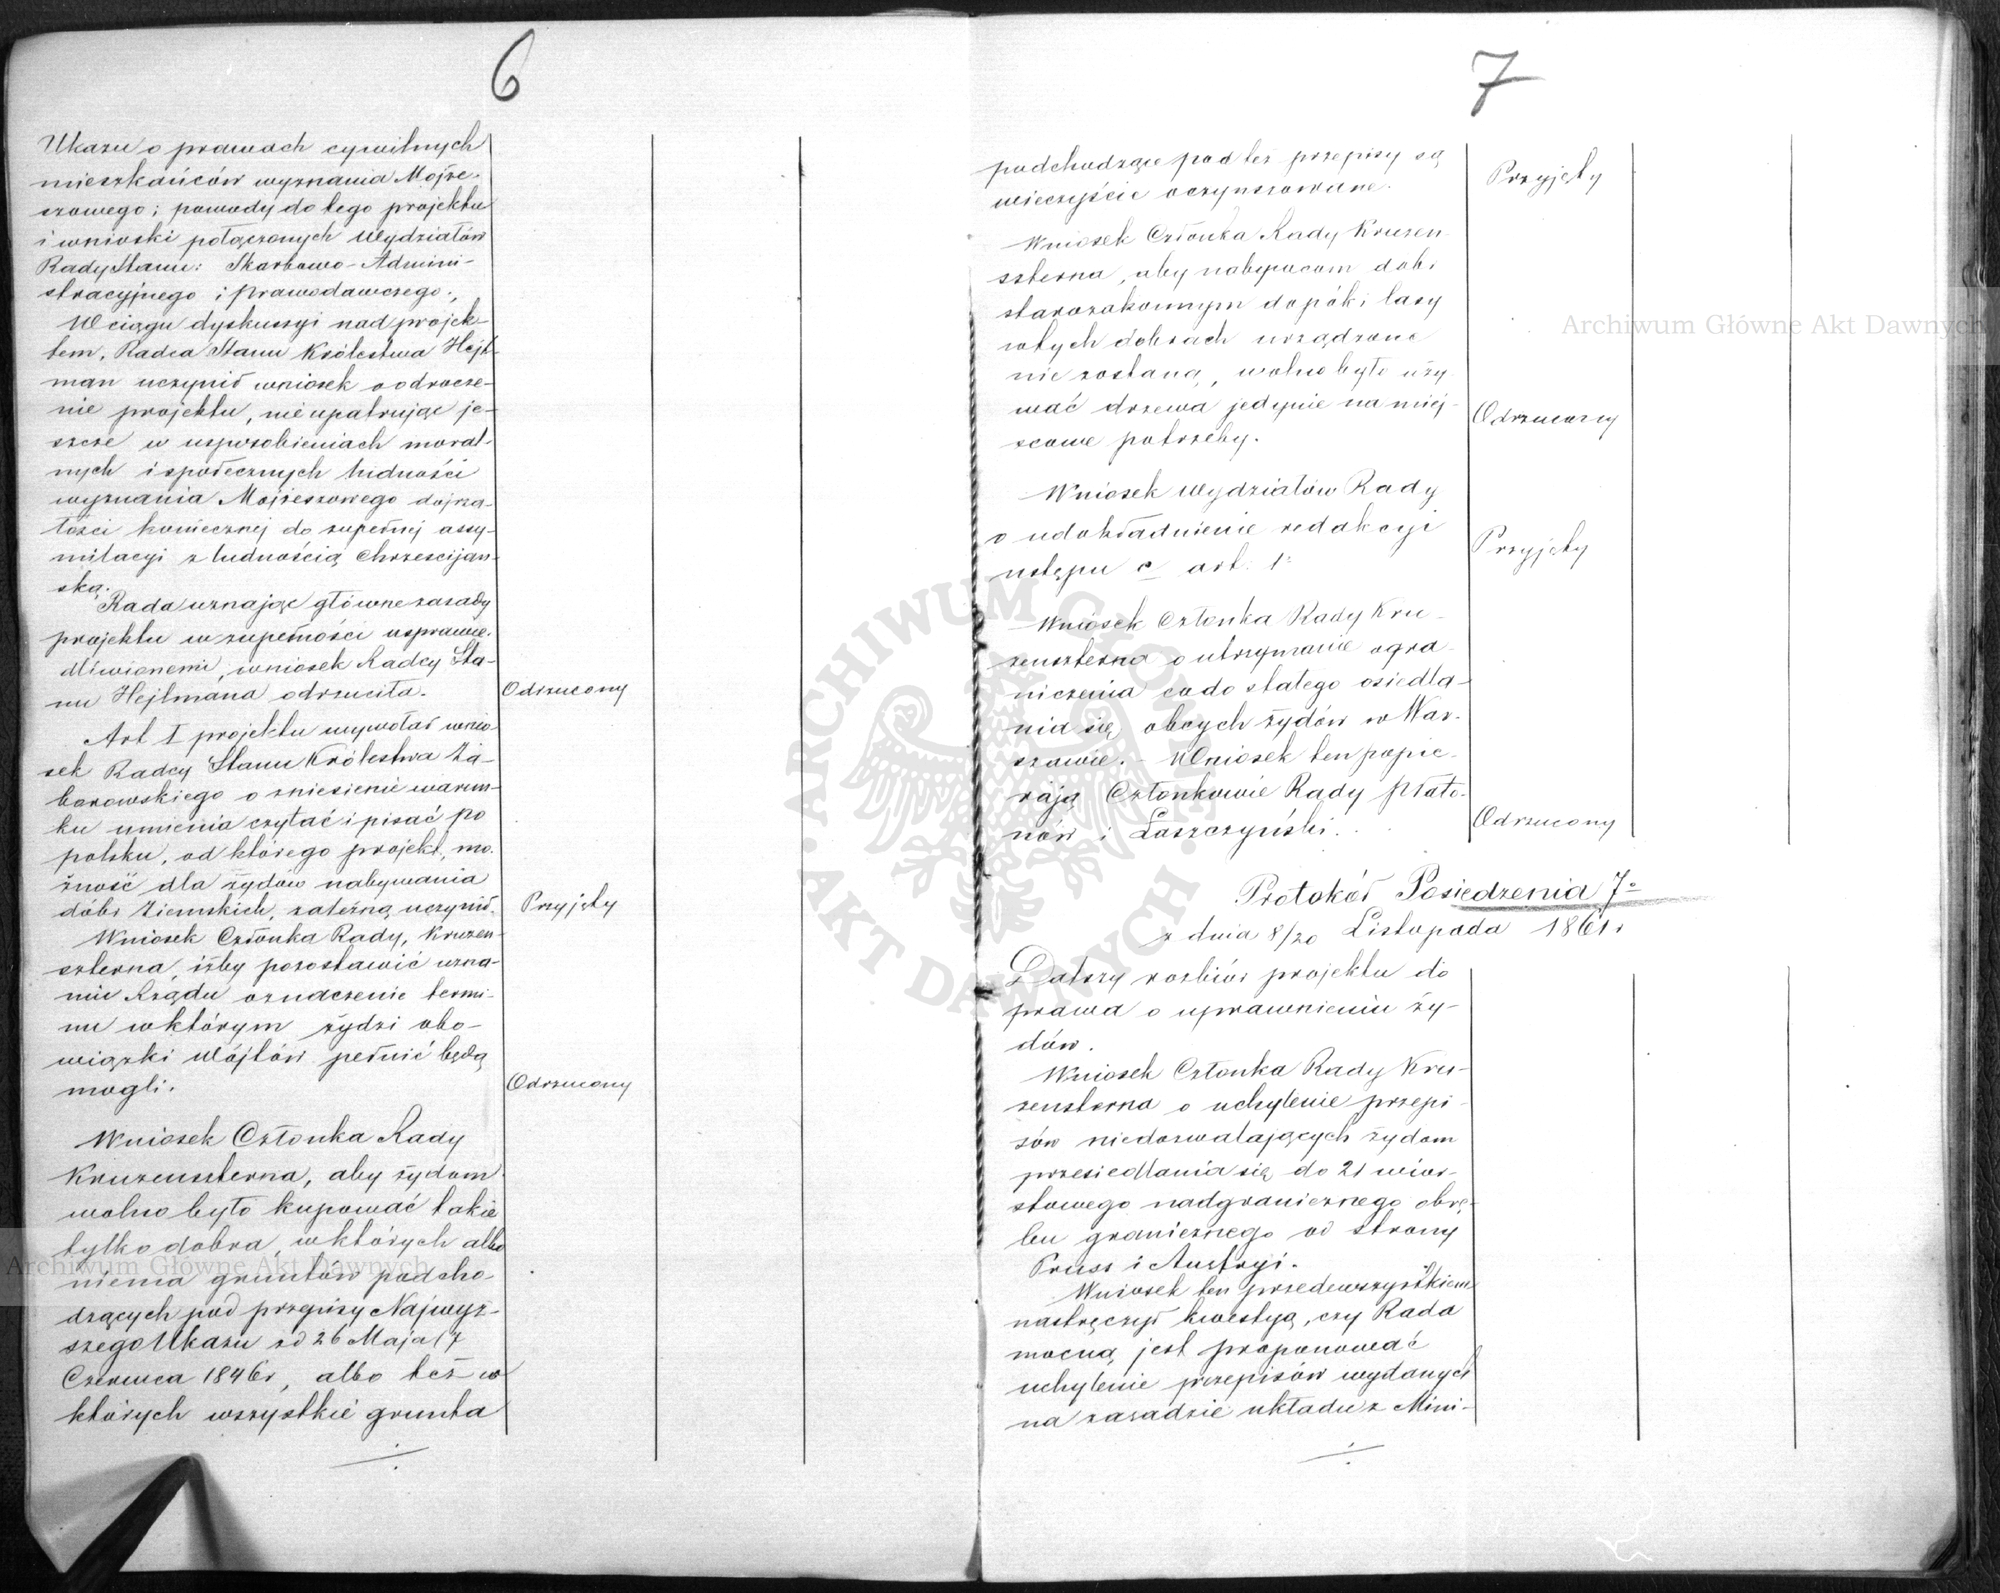 6
Ukazu o prawach cywilnych
mieszkańców wyznania Mojże-
szowego; powody do tego projektu
i wnioski połączonych Wydziałów
Rady Stanu: Skarbowo-Admini-
stracyjnego i prawodawczego.,
W ciągu dyskussyi nad projek-
tem, Radca Stanu Królestwa Hejl-
man uczynił wniosek o odrocze-
nie projektu, nie upatrując je-
szcze w usposobieniach moral-
nych i społecznych ludności
wyznania Mojżeszowego dojrza-
łości koniecznej do zupełnej assy-
milacyi z ludnością chrzescijan-
ską.
Rada uznając główne zasady
projektu w zupełności usprawie-
dliwionemi, wniosek Radcy Sta-
nu Hejlmana odrzuciła.
Odrzucony
Art I projektu wywołał wnio-
sek Radcy Stanu Królestwa Za-
borowskiego o zniesienie warun-
ku umienia czytać i pisać po
polsku, od którego projekt, mo-
żność dla żydów nabywania
dóbr Ziemskich, zależną uczynił.
Przyjęty
Wniosek Członka Rady, Kruzen-
szterna, iżby pozostawić uzna-
niu Rządu oznaczenie termi-
nu w którym żydzi obo-
wiązki Wójtów pełnić będą
mogli.
Odrzucony
Wniosek Członka Rady
Kruzenszterna, aby żydom
wolno było kupować takie
tylko dobra, w których albo
niema gruntów podcho-
dzących pod przepisy Najwyż-
szego Ukazu od 26 Maja/7
Czerwca 1846r, albo też w
których wszystkie grunta
7
podchodzące pod też przepisy są
wieczyście oczynszowane.
Przyjęty
Wniosek Członka Rady Kruzen
szterna, aby nabywcom dóbr
starozakonnym dopóki lasy
w tych dobrach urządzone
nie zostaną, wolno było uży
wać drzewa jedynie na miej-
scowe potrzeby.
Odrzucony
Wniosek Wydziałów Rady
o udokładnienie redakcyi
ustępu c art. 1º
Przyjęty
Wniosek Członka Rady Kru-
zenszterna o utrzymanie ogra-
niczenia co do stałego osiedla-
nia się obcych żydów w War-
szawie. – Wniosek ten popie-
rają Członkowie Rady Płato-
nów i Łaszczyński.
Odrzucony
Protokół Posiedzenia 7º
z dnia 8/20 Listopada 1861r
Dalszy rozbiór projektu do
prawa o uprawnieniu ży-
dów.
Wniosek Członka Rady Kru-
zensterna o uchylenie przepi-
sów niedozwalających żydom
przesiedlania się do 21 wior-
stowego nadgranicznego obrę-
bu granicznego od strony
Pruss i Austryi.
Wniosek ten przedewszystkiem
nastręczył kwestyą, czy Rada
mocną jest proponować
uchylenie przepisów wydanych
na zasadzie układu z Mini-
Archiwum Główne Akt Dawnych
Archiwum Główne Akt Dawnych
ARCHIWUM GŁÓWNE AKT DAWNYCH